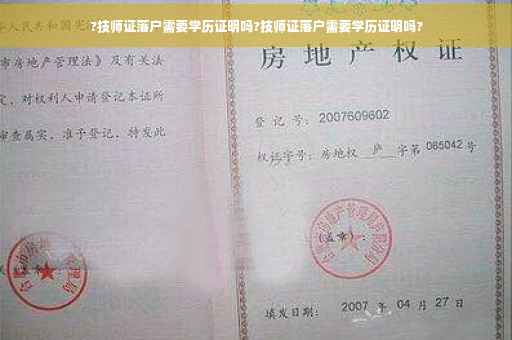 ?技师证落户需要学历证明吗?技师证落户需要学历证明吗?
人民共和国宪
市房地产管理法》及有关法
定，对权利人申请登记本证所
审查属实，准予登记，特发此
房地产权证
登记号：2007609602
权证字号：房地权 庐 字第 065042 号
(盖章)：
填发日期：2007 年 04 月 27 日